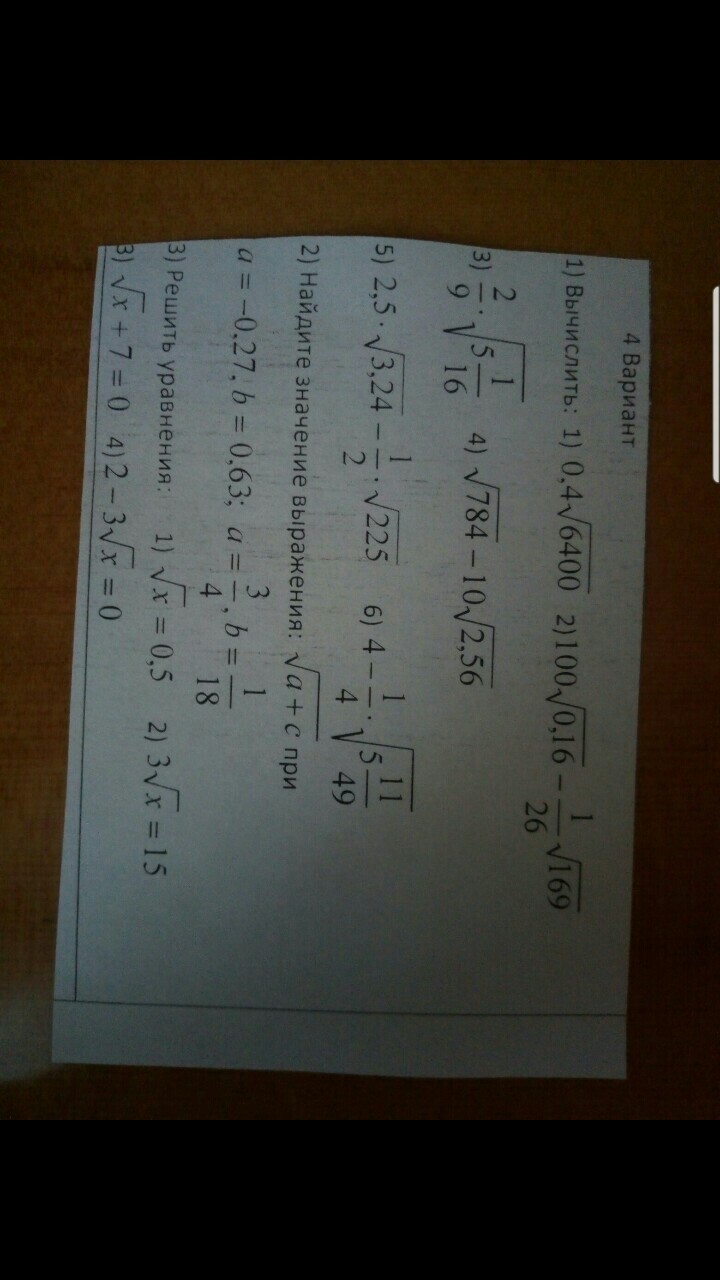 4 Вариант
1) Вычислить: 1) 0,4√6400 2)100√0,16 − 1/26 √169
3) 2/9 · √(5 1/16) 4) √784 − 10√2,56
5) 2,5 · √3,24 − 1/2 · √225 6) 4 − 1/4 · √(5 11/49)
2) Найдите значение выражения: √(a + c) при
a = −0,27, b = 0,63; a = 3/4, b = 1/18
3) Решить уравнения: 1) √x = 0,5 2) 3√x = 15
3) √x + 7 = 0 4)2 − 3√x = 0